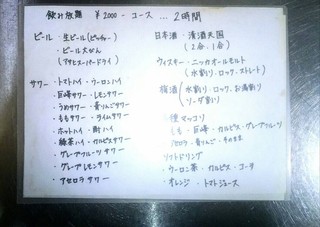 飲み放題 ¥2000- コース ... 2時間
ビール・生ビール(ピッチャー)
・ビール大びん
(アサヒスーパードライ)
サワー・トマトハイ・ウーロンハイ
・巨峰サワー・レモンサワー
・うめサワー・青りんごサワー
・ももサワー・ライムサワー
・ホットハイ・酎ハイ
・緑茶ハイ・カルピスサワー
・グレープフルーツサワー
・グレープレモンサワー
・アセロラサワー
日本酒・清酒
(2合、1合)
ウィスキー・ニッカオールモルト
(水割り、ロック、ストレート)
梅酒(水割り、ロック、お湯割り
ソーダ割り)
マッコリ
・桃・巨峰・カルピス・グレープフルーツ
アセロラ・青りんご・そのまま
ソフトドリンク
・ウーロン茶・カルピス・コーラ
・オレンジ・トマトジュース